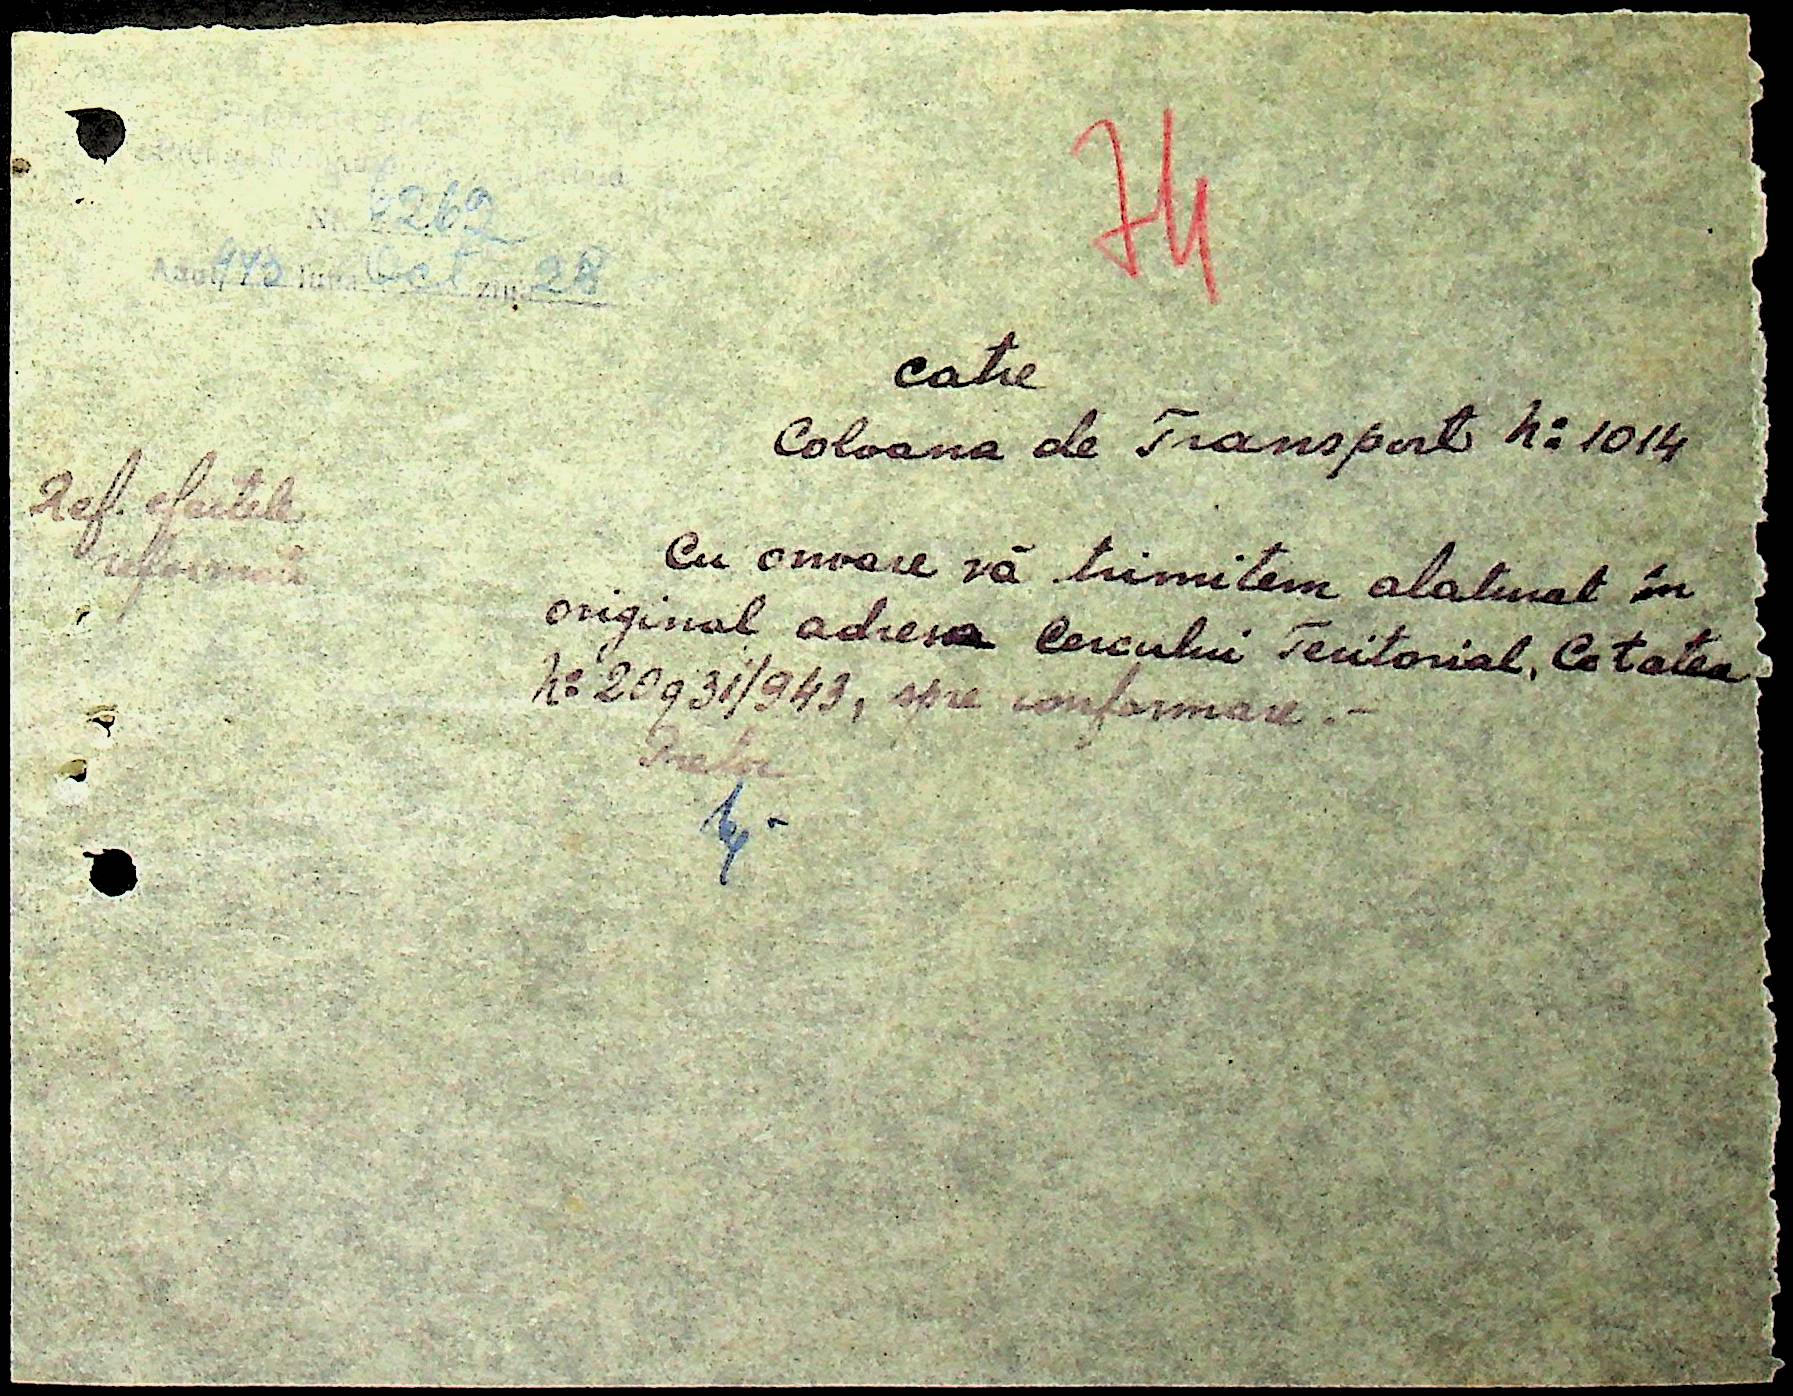 74
Nr. 6262
Anul 943 luna Oct ziua 28
catre
Coloana de Transport No 1014
Ref. efectele
reformate
Cu onoare vă trimitem alaturat în
original adresa Cercului Teritorial, Cetatea
No 20931/943, spre conformare.-
Pretor